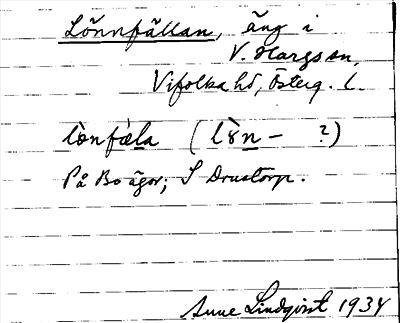 Lönnfällan, äng i
V. Hargs sn,
Vifolka hd, Österg. l.
lònfæ̀la (lɤ̀n- ?)
På Bo ägor; S Drustorp.
Anne Lindqvist 1934